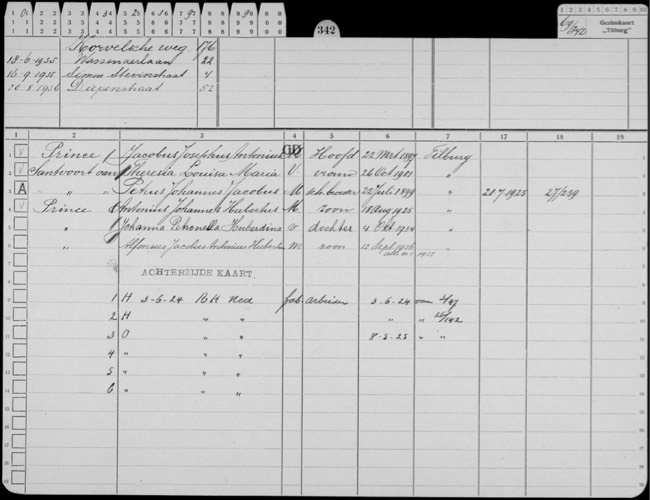 342
Gezinskaart
"Tilburg"
Korvelsche weg 176
18-6-1925 Wassenaerlaan 22
15-9-1925 Simon Stevinstraat 4
20-8-1936 Diepenstraat 52
1 2 3 4 5 6 7 17 18 19
Prince Jacobus Josephus Antonius M Hoofd 22 Mrt 1897 Tilburg
Santvoort van Theresia Louisa Maria V vrouw 26 Oct 1901 "
A " " Petrus Johannes Jacobus M sch. broeder 22 Juli 1899 " 20 7 1925
Prince Antonius Johannes Hubertus M. zoon 18 Aug 1925 "
" Johanna Petronella Huberdina v dochter 4 Oct 1934 "
" Alfonsus Jacobus Antonius Hubertus m zoon 12 Sept 1936
ACHTERZIJDE KAART.
1 H 3-6-24 RK Ned fab. arbeider 3-6-24
2 H " " " "
3 O " " 8-5-25 " "
4 " " "
5 " " "
6 " " "